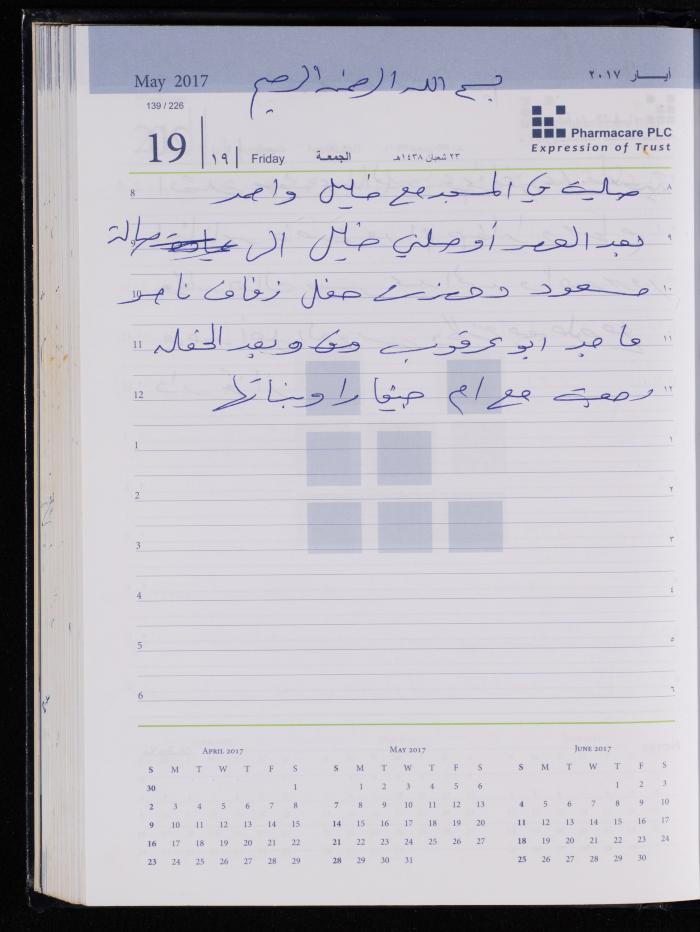 بسم الله الرحمن الرحيم
May 2017
أيــار ٢٠١٧
139 / 226
19 | ١٩ | Friday الجمعـة ٢٣ شعبان ١٤٣٨هـ
Pharmacare PLC
Expression of Trust
8 صليت في المسجد مع خليل واحمد ٨
9 بعد العصر أوصلني خليل الى صالة ٩
10 مسعود وحضرت حفل زفاف ١٠
11 ماجد ابو عرقوب وبعد الحفله ١١
12 رجعت مع ام وبناتها ١٢
1 ١
2 ٢
3 ٣
4 ٤
5 ٥
6 ٦
April 2017
S M T W T F S
30 1
2 3 4 5 6 7 8
9 10 11 12 13 14 15
16 17 18 19 20 21 22
23 24 25 26 27 28 29
May 2017
S M T W T F S
1 2 3 4 5 6
7 8 9 10 11 12 13
14 15 16 17 18 19 20
21 22 23 24 25 26 27
28 29 30 31
June 2017
S M T W T F S
1 2 3
4 5 6 7 8 9 10
11 12 13 14 15 16 17
18 19 20 21 22 23 24
25 26 27 28 29 30